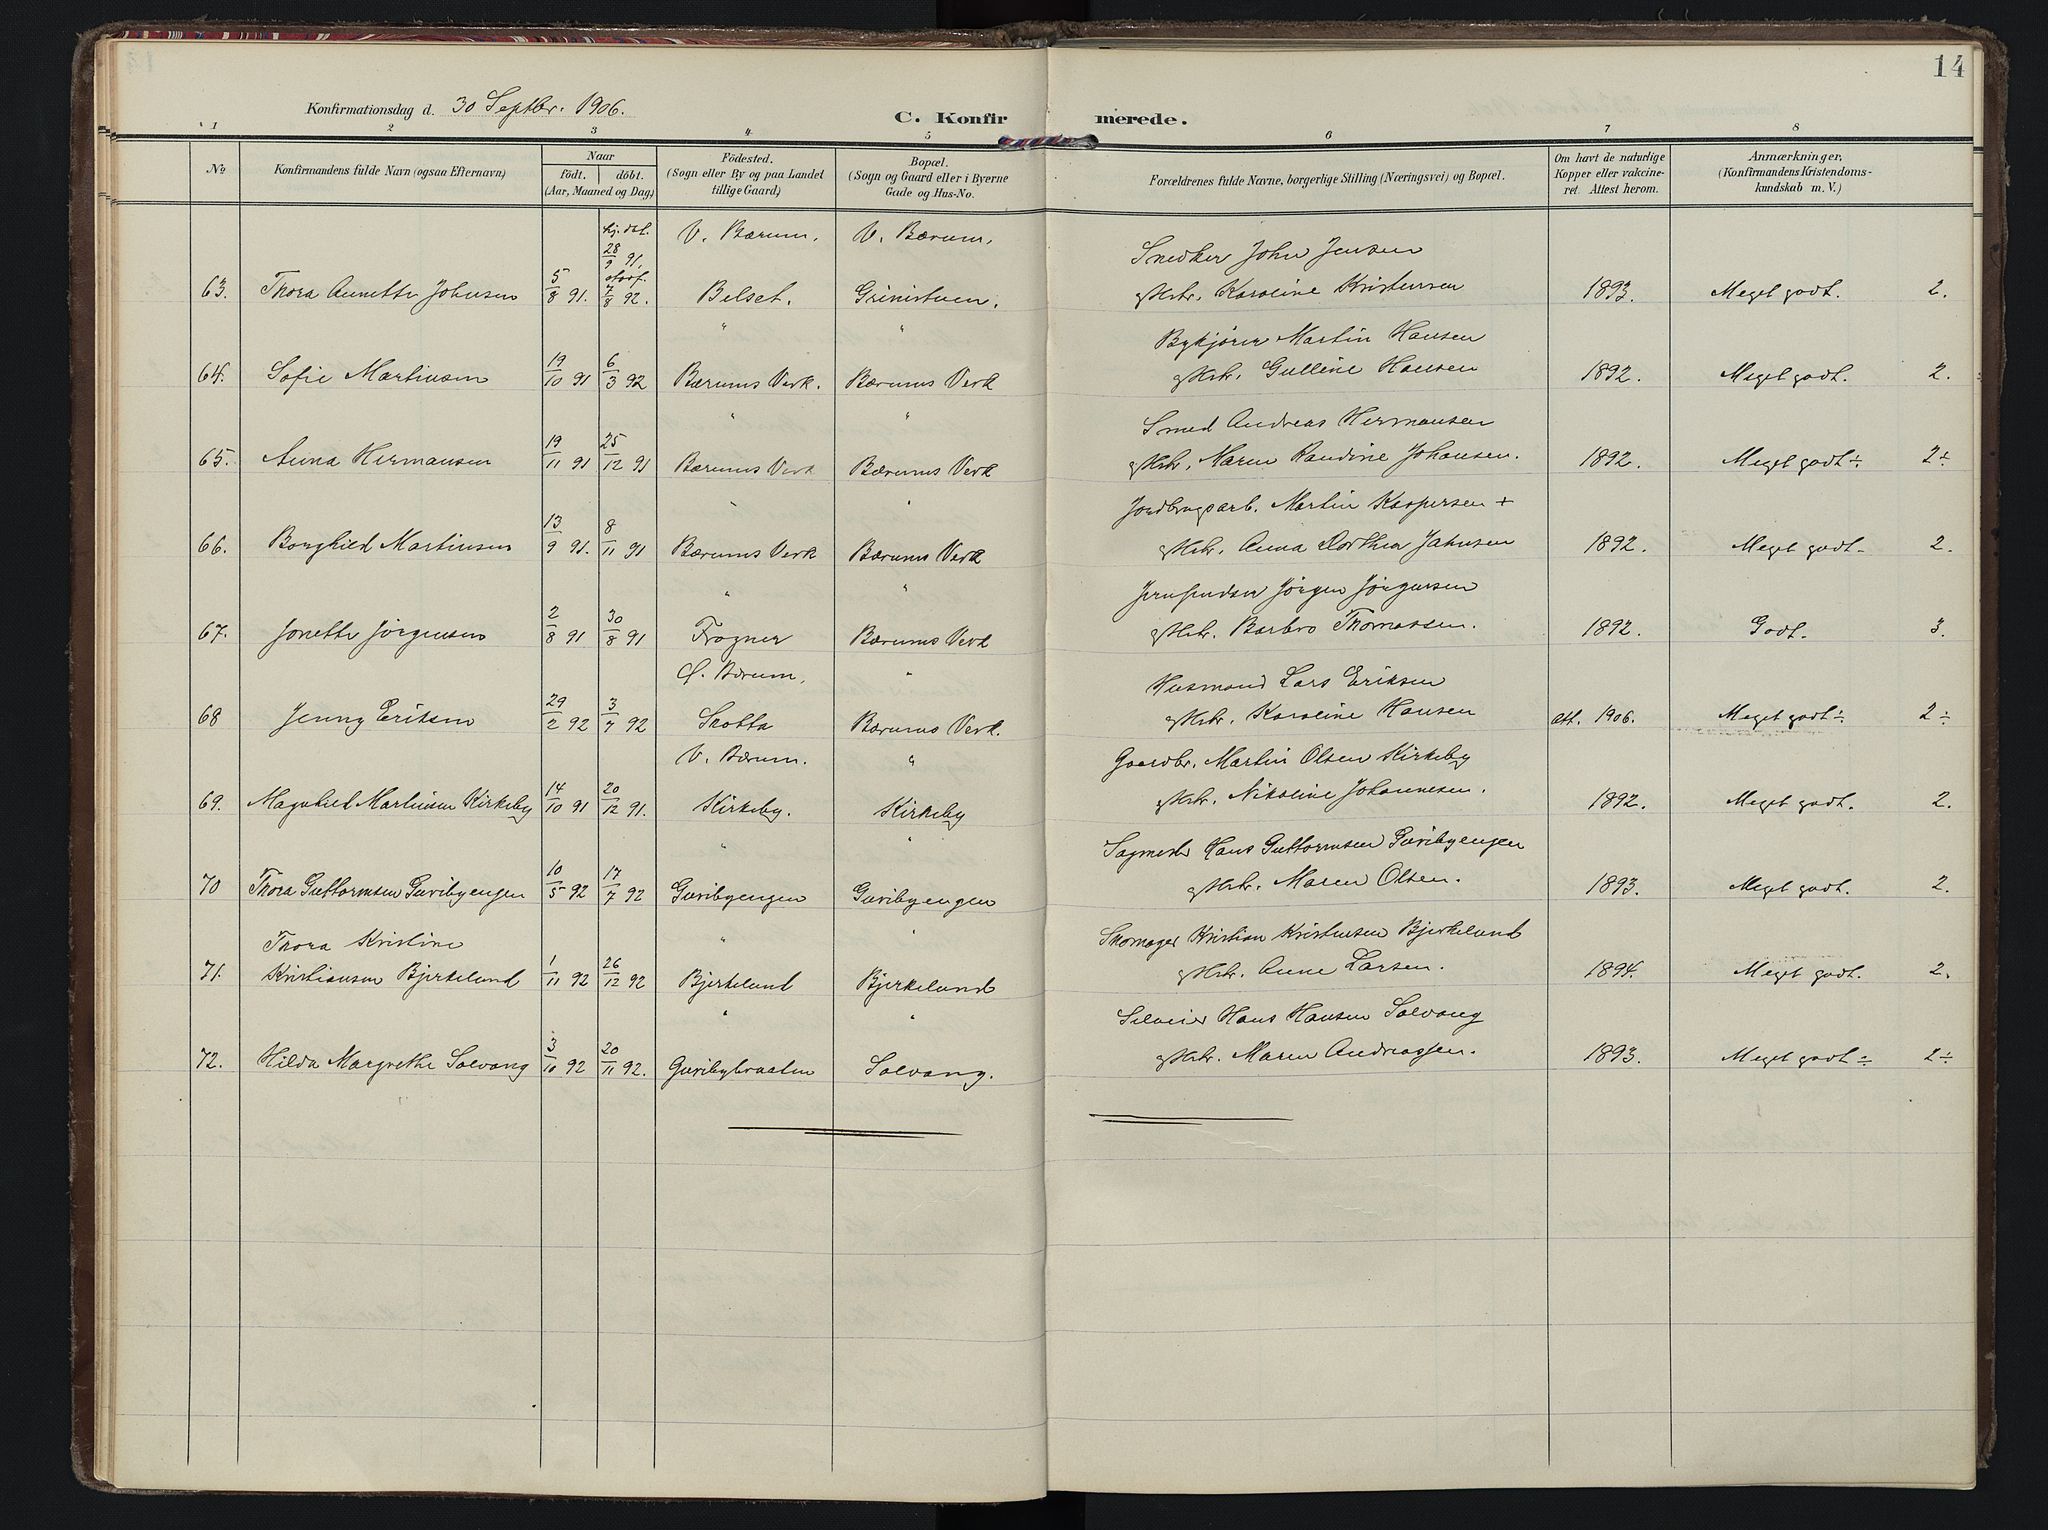 14
Konfirmationsdag d. 30 Septbr. 1906.
C. Konfirmerede.
1 2 3 4 5 6 7 8
No
Konfirmandens fulde Navn (ogsaa Efternavn)
Naar
födt. döbt.
(Aar, Maaned og Dag)
Födested.
(Sogn eller By og paa Landet
tillige Gaard)
Bopæl.
(Sogn og Gaard eller i Byerne
Gade og Hus-No.
Forældrenes fulde Navne, borgerlige Stilling (Næringsvei) og Bopæl.
Om havt de naturlige
Kopper eller vakcine-
ret. Attest herom.
Anmærkninger,
(Konfirmandens Kristendoms-
kundskab m. V.)
hj. dbt. V. Bærum. V. Bærum.
28/9 91, Snedker John Jensen
63. Thora Annette Johnsen 5/8 91. 7/8 92. Belset. Grinistuen. og Hstr. Karoline Kristensen 1893. Meget godt. 2.
" " Bykjører Martin Hansen
64. Sofie Martinsen 19/10 91 6/3 92 Bærums Verk. Bærums Verk og Hstr. Gulline Hansen 1892. Meget godt. 2.
" " Smed Andreas Hermansen
65. Anna Hermansen 19/11 91 25/12 91 Bærums Verk Bærums Verk og Hstr. Maren Randine Johansen. 1892. Meget godt ÷. 2 ÷
" " Jordbrugsarb. Martin Kaspersen +
66. Borghild Martinsen 13/9 91. 8/11 91 Bærums Verk Bærums Verk og Hstr. Anna Dorthea Jahnsen 1892. Meget godt. 2.
" " Jørgen Jørgensen
67. Jonette Jørgensen 2/8 91 30/8 91 Frogner Bærums Verk og Hstr. Barbro Thomassen. 1892. Godt. 3.
Ø. Bærum. " Husmand Lars Eriksen
68 Jenny Eriksen 29/2 92 3/7 92 Skotta Bærums Verk. og Hstr. Karoline Hansen att. 1906. Meget godt ÷ 2 ÷
V. Bærum. " Gaardbr. Martin Olsen Kirkeby
69. Magnhild Martinsen Kirkeby 14/10 91 20/12 91. Kirkeby. Kirkeby og Hstr. Nikoline Johannesen. 1892. Meget godt. 2.
" " Sagmester Hans Guttormsen Guribyengen
70 Thora Guttormsen Guribyengen 10/5 92 17/7 92 Guribyengen Guribyengen og Hstr. Maren Olsen. 1893. Meget godt. 2.
Thora Kristine " " Skomager Kristian Kristensen Bjerkelund
71. Kristiansen Bjerkelund 1/11 92 26/12 92 Bjerkelund Bjerkelund og Hstr. Anne Larsen. 1894. Meget godt. 2.
" " Hans Hansen Solvang
72. Hilda Margrethe Solvang 3/10 92 20/11 92. Guribybraaten Solvang. og Hstr. Maren Andreassen. 1893. Meget godt ÷ 2 ÷